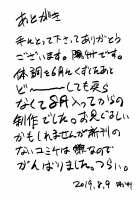 あとがき
手にとって下さってありがとう
ございます。陽炒です。
体調を6月くずしたあと
ど〜しても戻ら
なくて8月入ってからの
制作でした。お見ぐるしい
かもしれませんが新刊の
ないコミケは嫌なので
がんばりました。つらい。
2019.8.9